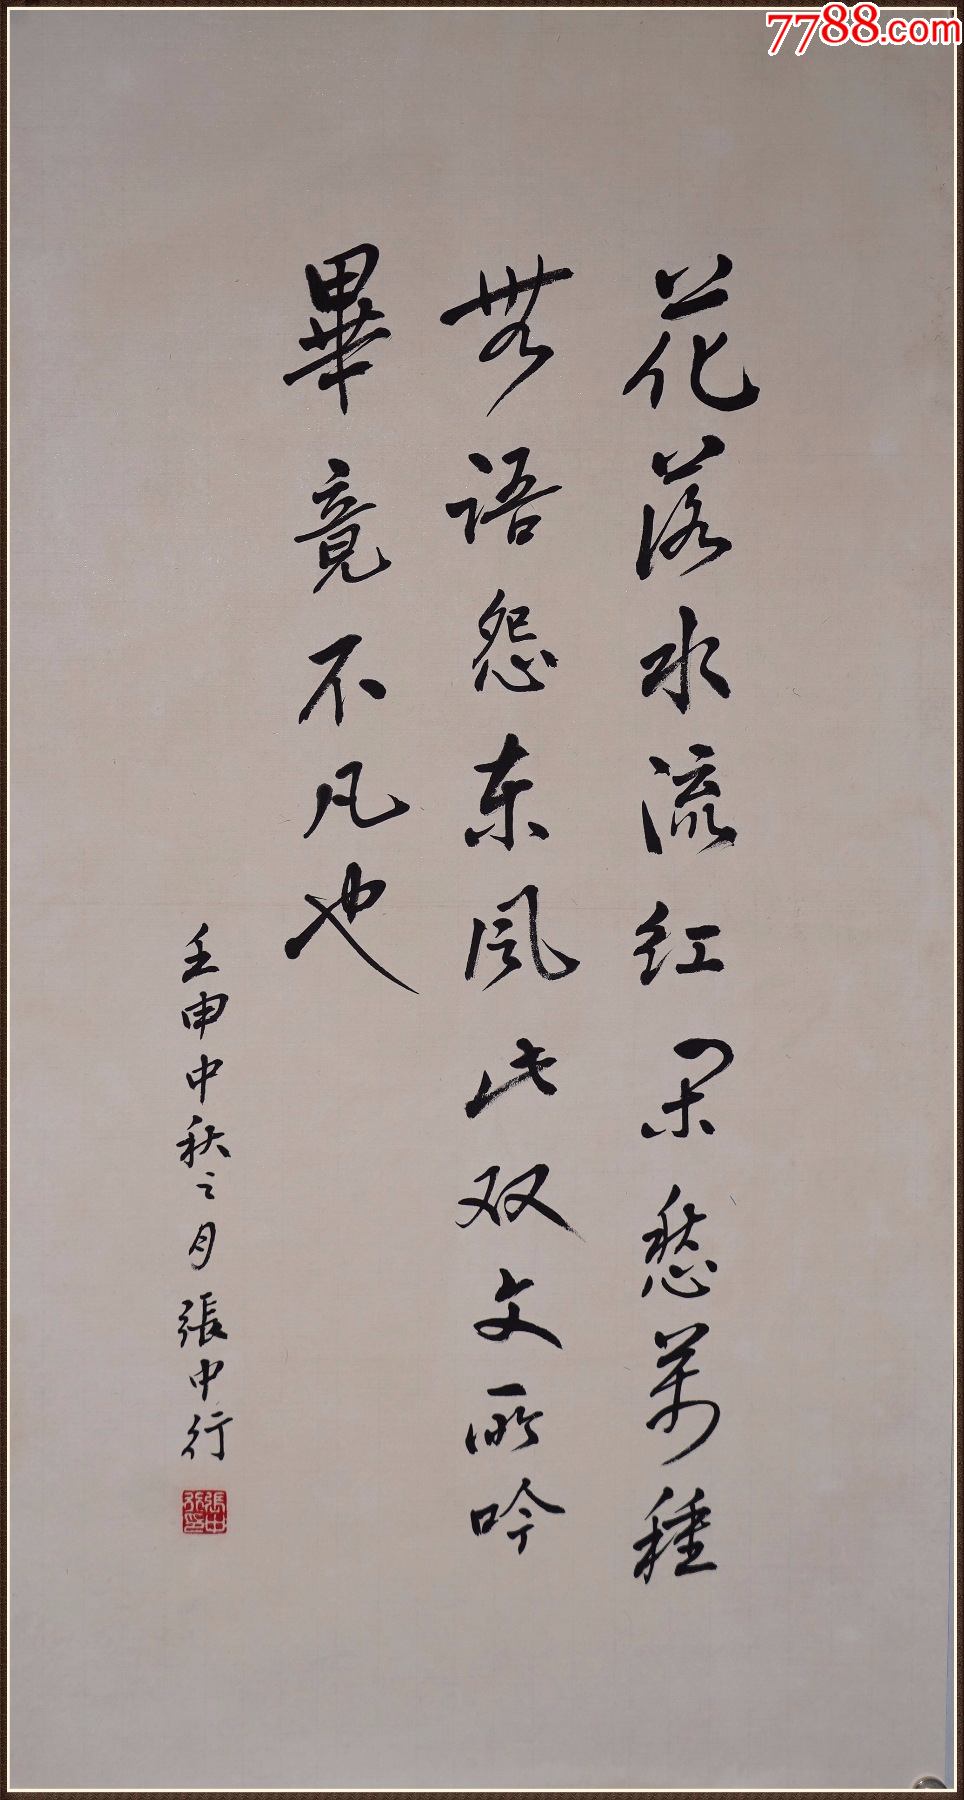 7788.com
花落水流红闲愁萬種
無语怨东风此双文所吟
畢竟不凡也
壬申中秋之月張中行
張中行印